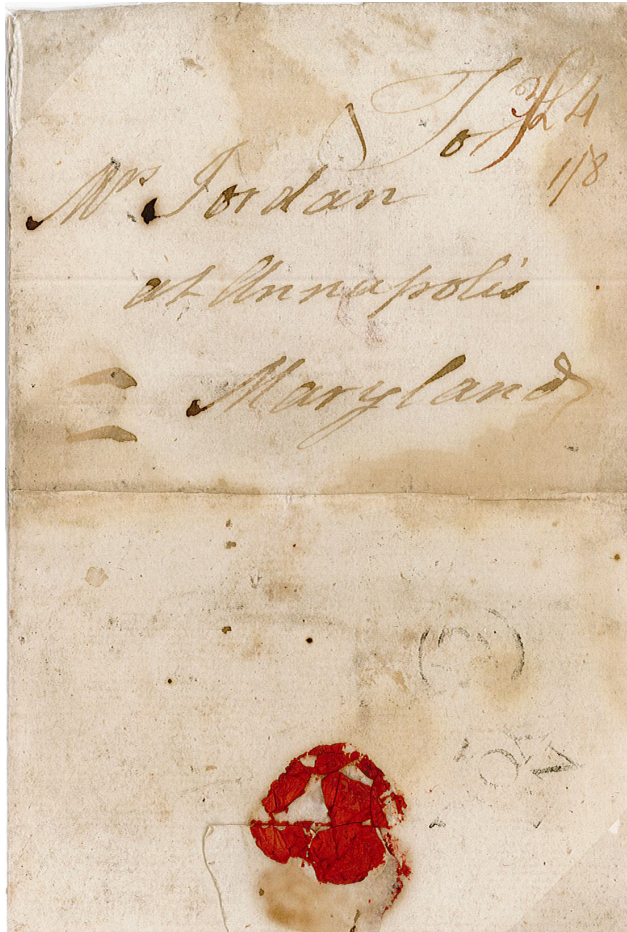 To
4
1/8
Mrs Jordan
at Annapolis
Maryland